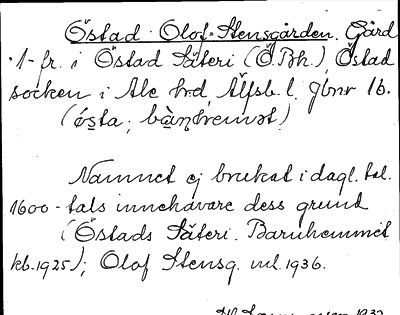 Östad Olof-Stensgården. Gård
1-fr. i Östad Säteri (Ö. Bh.), Östad
socken i Ale hrd, Älfsb. l. Jbnr 16.
(ö́sta; bà̱n̥hemət)
Namnet ej brukat i dagl. tal.
1600-tals innehavare dess grund
(Östads Säteri. Barnhemmet
kb. 1925); Olof Stensg. ml. 1936.